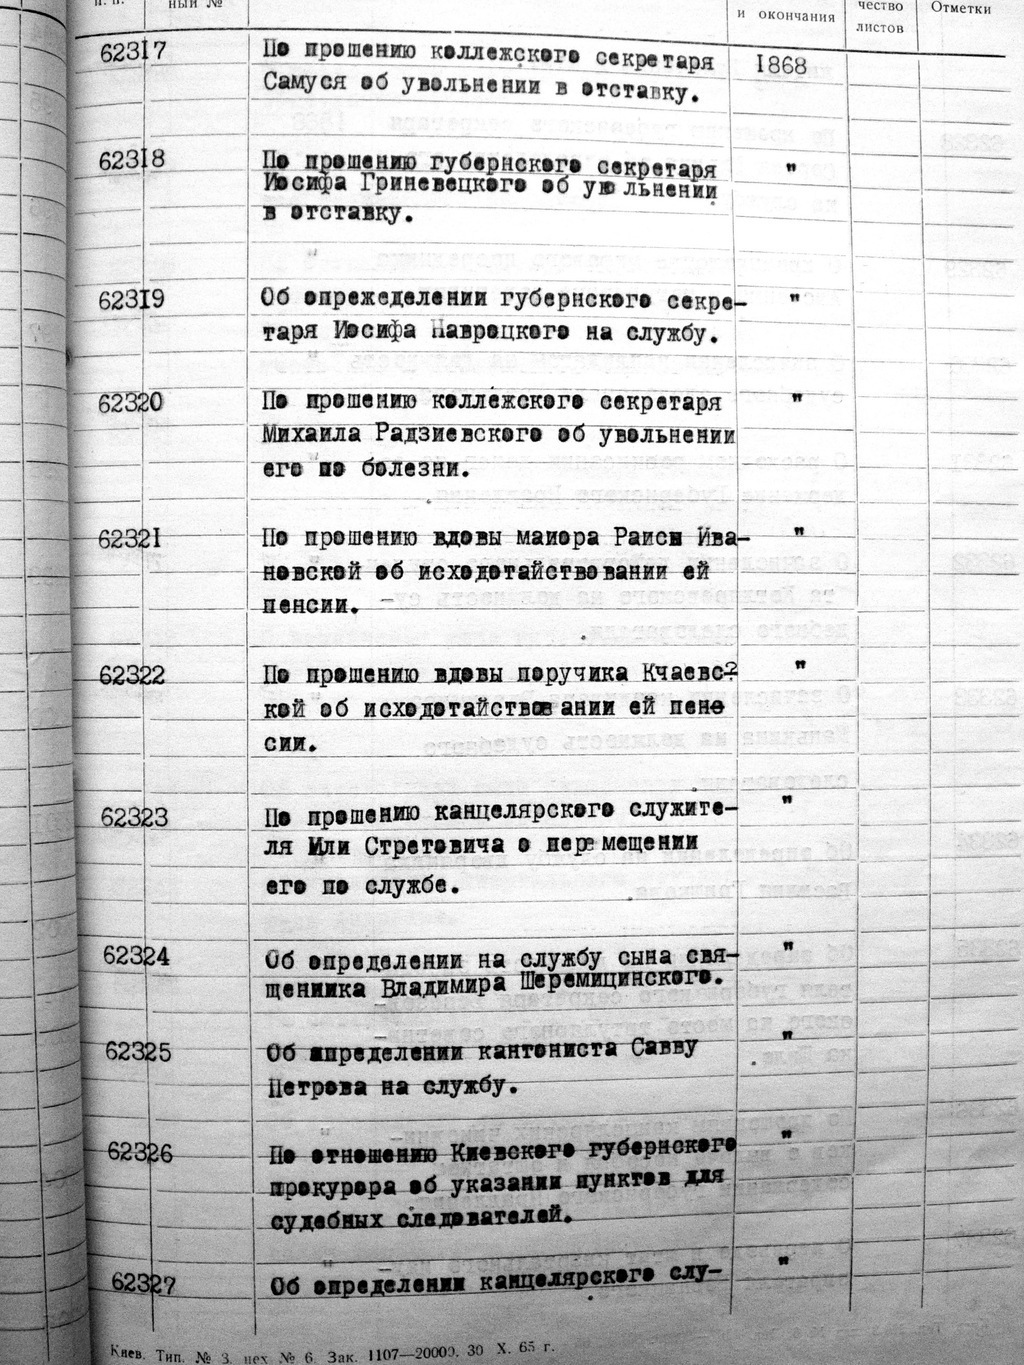 п. п.
ный №
и окончания
чество
листов
Отметки
62317
По прошению коллежского секретаря
1868
Самуся об увольнении в отставку.
62318
По прошению губернского секретаря
"
Иосифа Гриневецкого об ув льнении
в отставку.
62319
Об опрежеделении губернского секре-
"
таря Иосифа Навроцкого на службу.
62320
По прошению коллежского секретаря
"
Михаила Радзиевского об увольнении
его по болезни.
62321
По прошению вдовы маиора Раисы Ива-
"
новской об исходотайствовании ей
пенсии.
62322
По прошению вдовы поручика Кчаевс?
"
кой об исходотайствовании ей пен-
сии.
62323
По прошению канцелярского служите-
"
ля Или Стретовича о перемещении
его по службе.
62324
Об определении на службу сына свя-
"
щенника Владимира Шеремицинского.
62325
Об определении кантониста Савву
"
Петрова на службу.
62326
По отношению Киевского губернского
"
прокурора об указании пунктов для
судебных следователей.
62327
Об определении канцелярского слу-
"
Киев. Тип. № 3, цех № 6. Зак. 1107—20000. 30 X. 65 г.